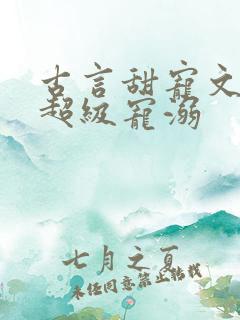 古言甜宠文
超级宠溺
七月之夏
未经同意禁止转载